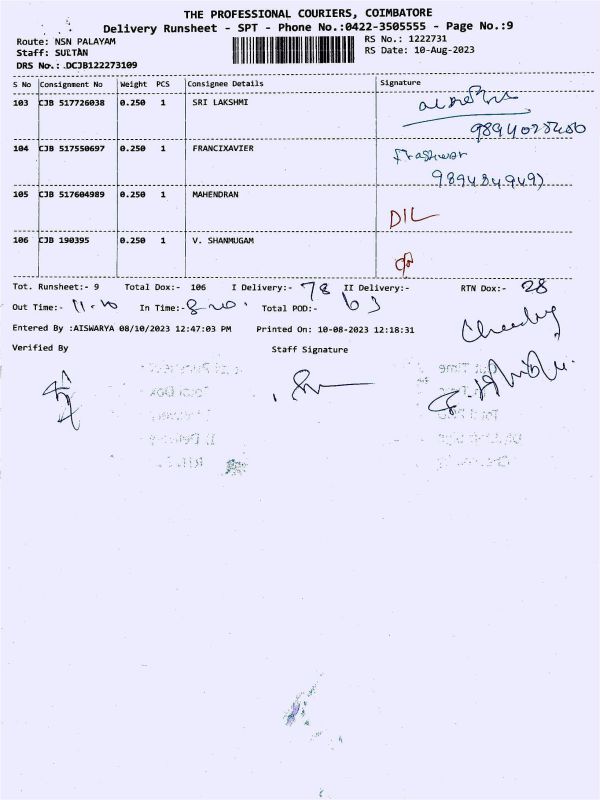 THE PROFESSIONAL COURIERS, COIMBATORE
Delivery Runsheet - SPT - Phone No.:0422-3505555 - Page No.:9
Route: NSN PALAYAM RS No.: 1222731
Staff: SULTAN RS Date: 10-Aug-2023
DRS No.: DCJB122273109
S No Consignment No Weight PCS Consignee Details Signature
103 CJB 517726038 0.250 1 SRI LAKSHMI
104 CJB 517550697 0.250 1 FRANCIXAVIER
105 CJB 517604989 0.250 1 MAHENDRAN
DIL
106 CJB 190395 0.250 1 V. SHANMUGAM
Tot. Runsheet:- 9 Total Dox:- 106 I Delivery:- 78 II Delivery:- RTN Dox:- 28
Out Time:- In Time:- Total POD:-
Entered By :AISWARYA 08/10/2023 12:47:03 PM Printed On: 10-08-2023 12:18:31
Verified By Staff Signature